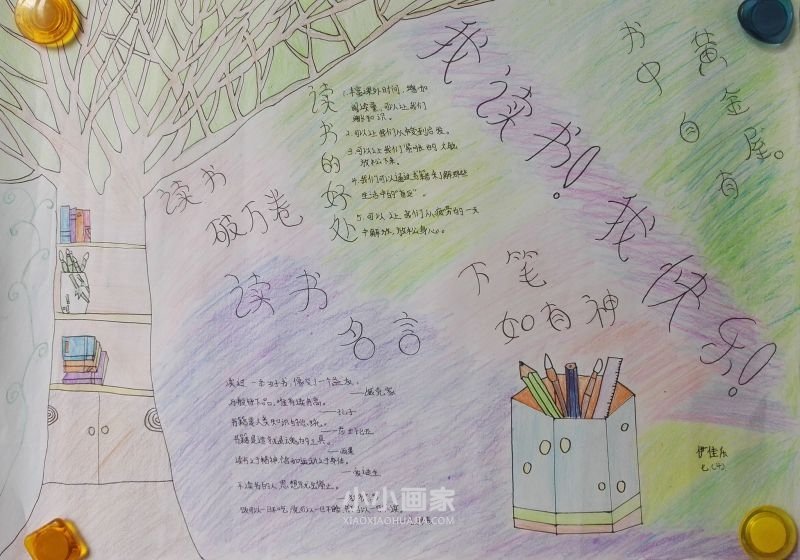 我读书！我快乐！
书中自有
黄金屋。
读书的好处
1.丰富课外时间，增加
阅读量，可以让我们
增长知识。
2.可以让我们从中受到启发。
3.可以让我们紧张的大脑
放松下来。
4.我们可以通过书籍来了解那些
生活中的
5.可以让我们从疲劳的一天
中解放，放松身心。
读书
破万卷
下笔
如有神
读书名言
读过一本好书，像交了一个益友。
——臧克家
——孔子
书籍是人类知识的
——莎士比亚
书籍是造就灵魂的工具。
——雨果
读书之于精神，恰如运动之于身体。
——爱迪生
不读书的人，思想就会停止。
伊佳乐
七(4)
小小画家
XIAOXIAOHUAJIA.COM